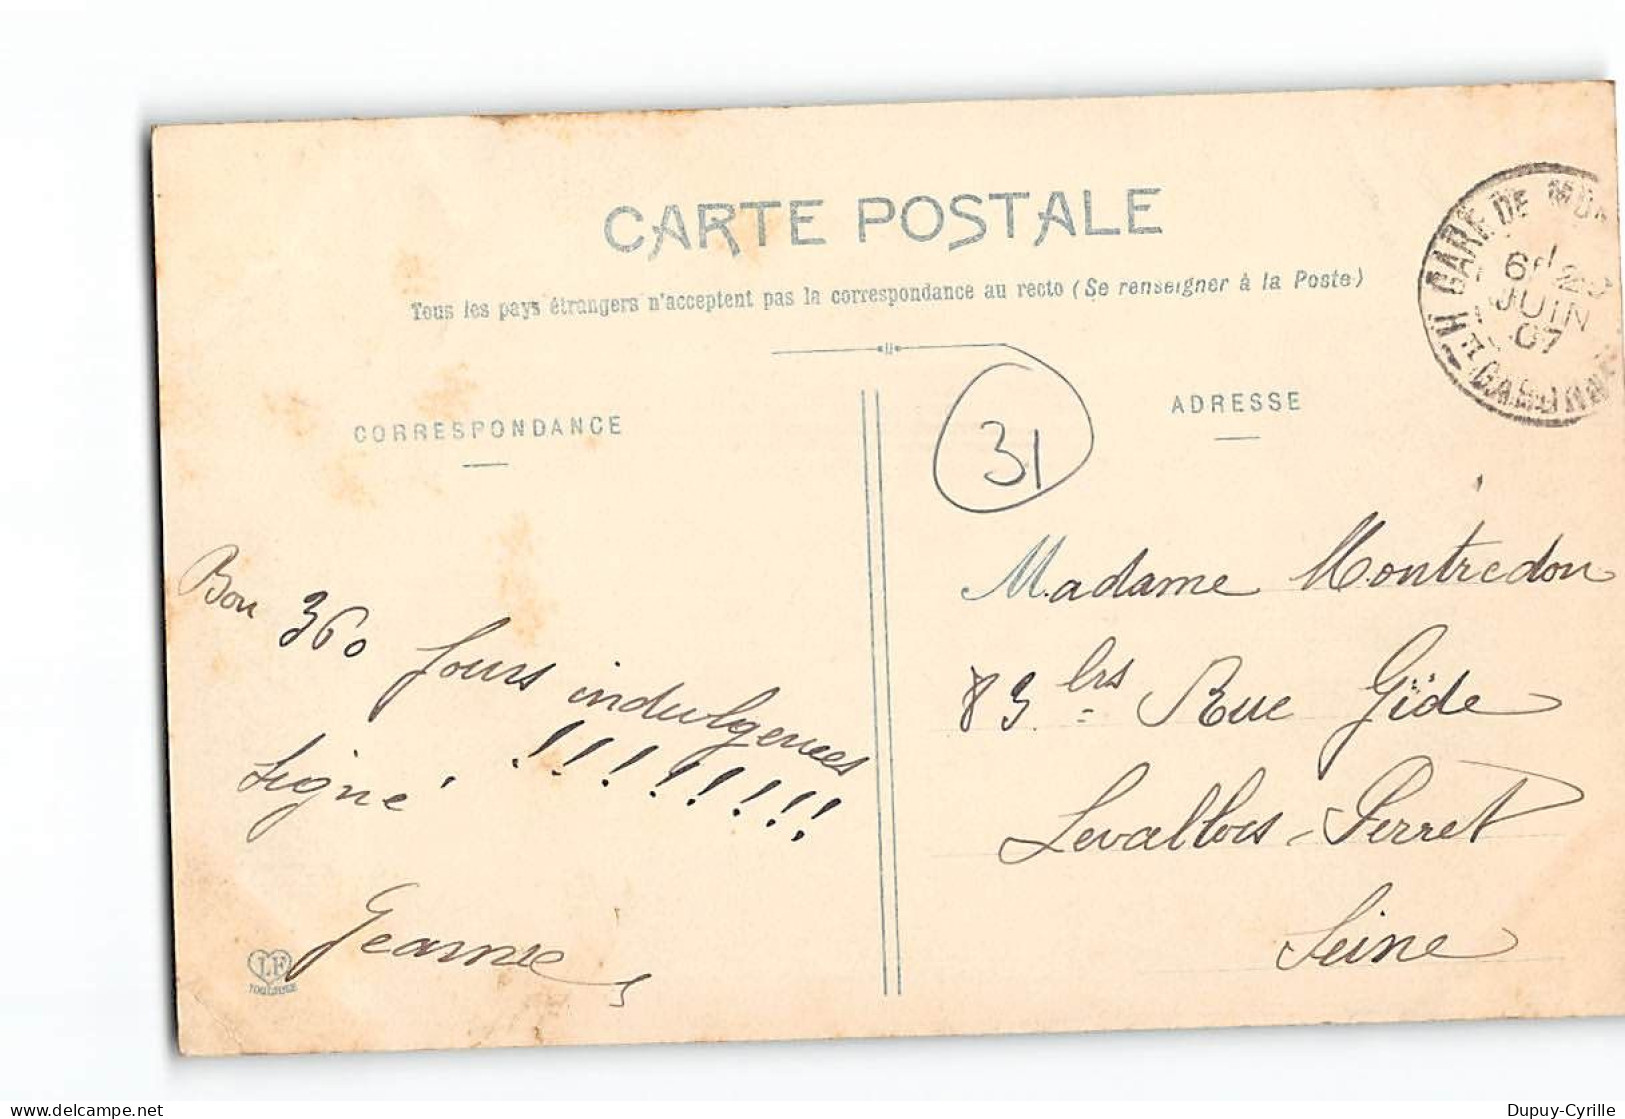 CARTE POSTALE
Tous les pays étrangers n'acceptent pas la correspondance au recto (Se renseigner à la Poste)
CORRESPONDANCE
ADRESSE
31
GARE DE
6
JUIN
07
Hte GARONNE
Bon 360 Jours indulgences
!!!!!!!!!
Signé.
Jeanne
Madame Montredon
83 bis Rue Gide
Levallois-Perret
Seine
LF
TOULOUSE
Dupuy-Cyrille